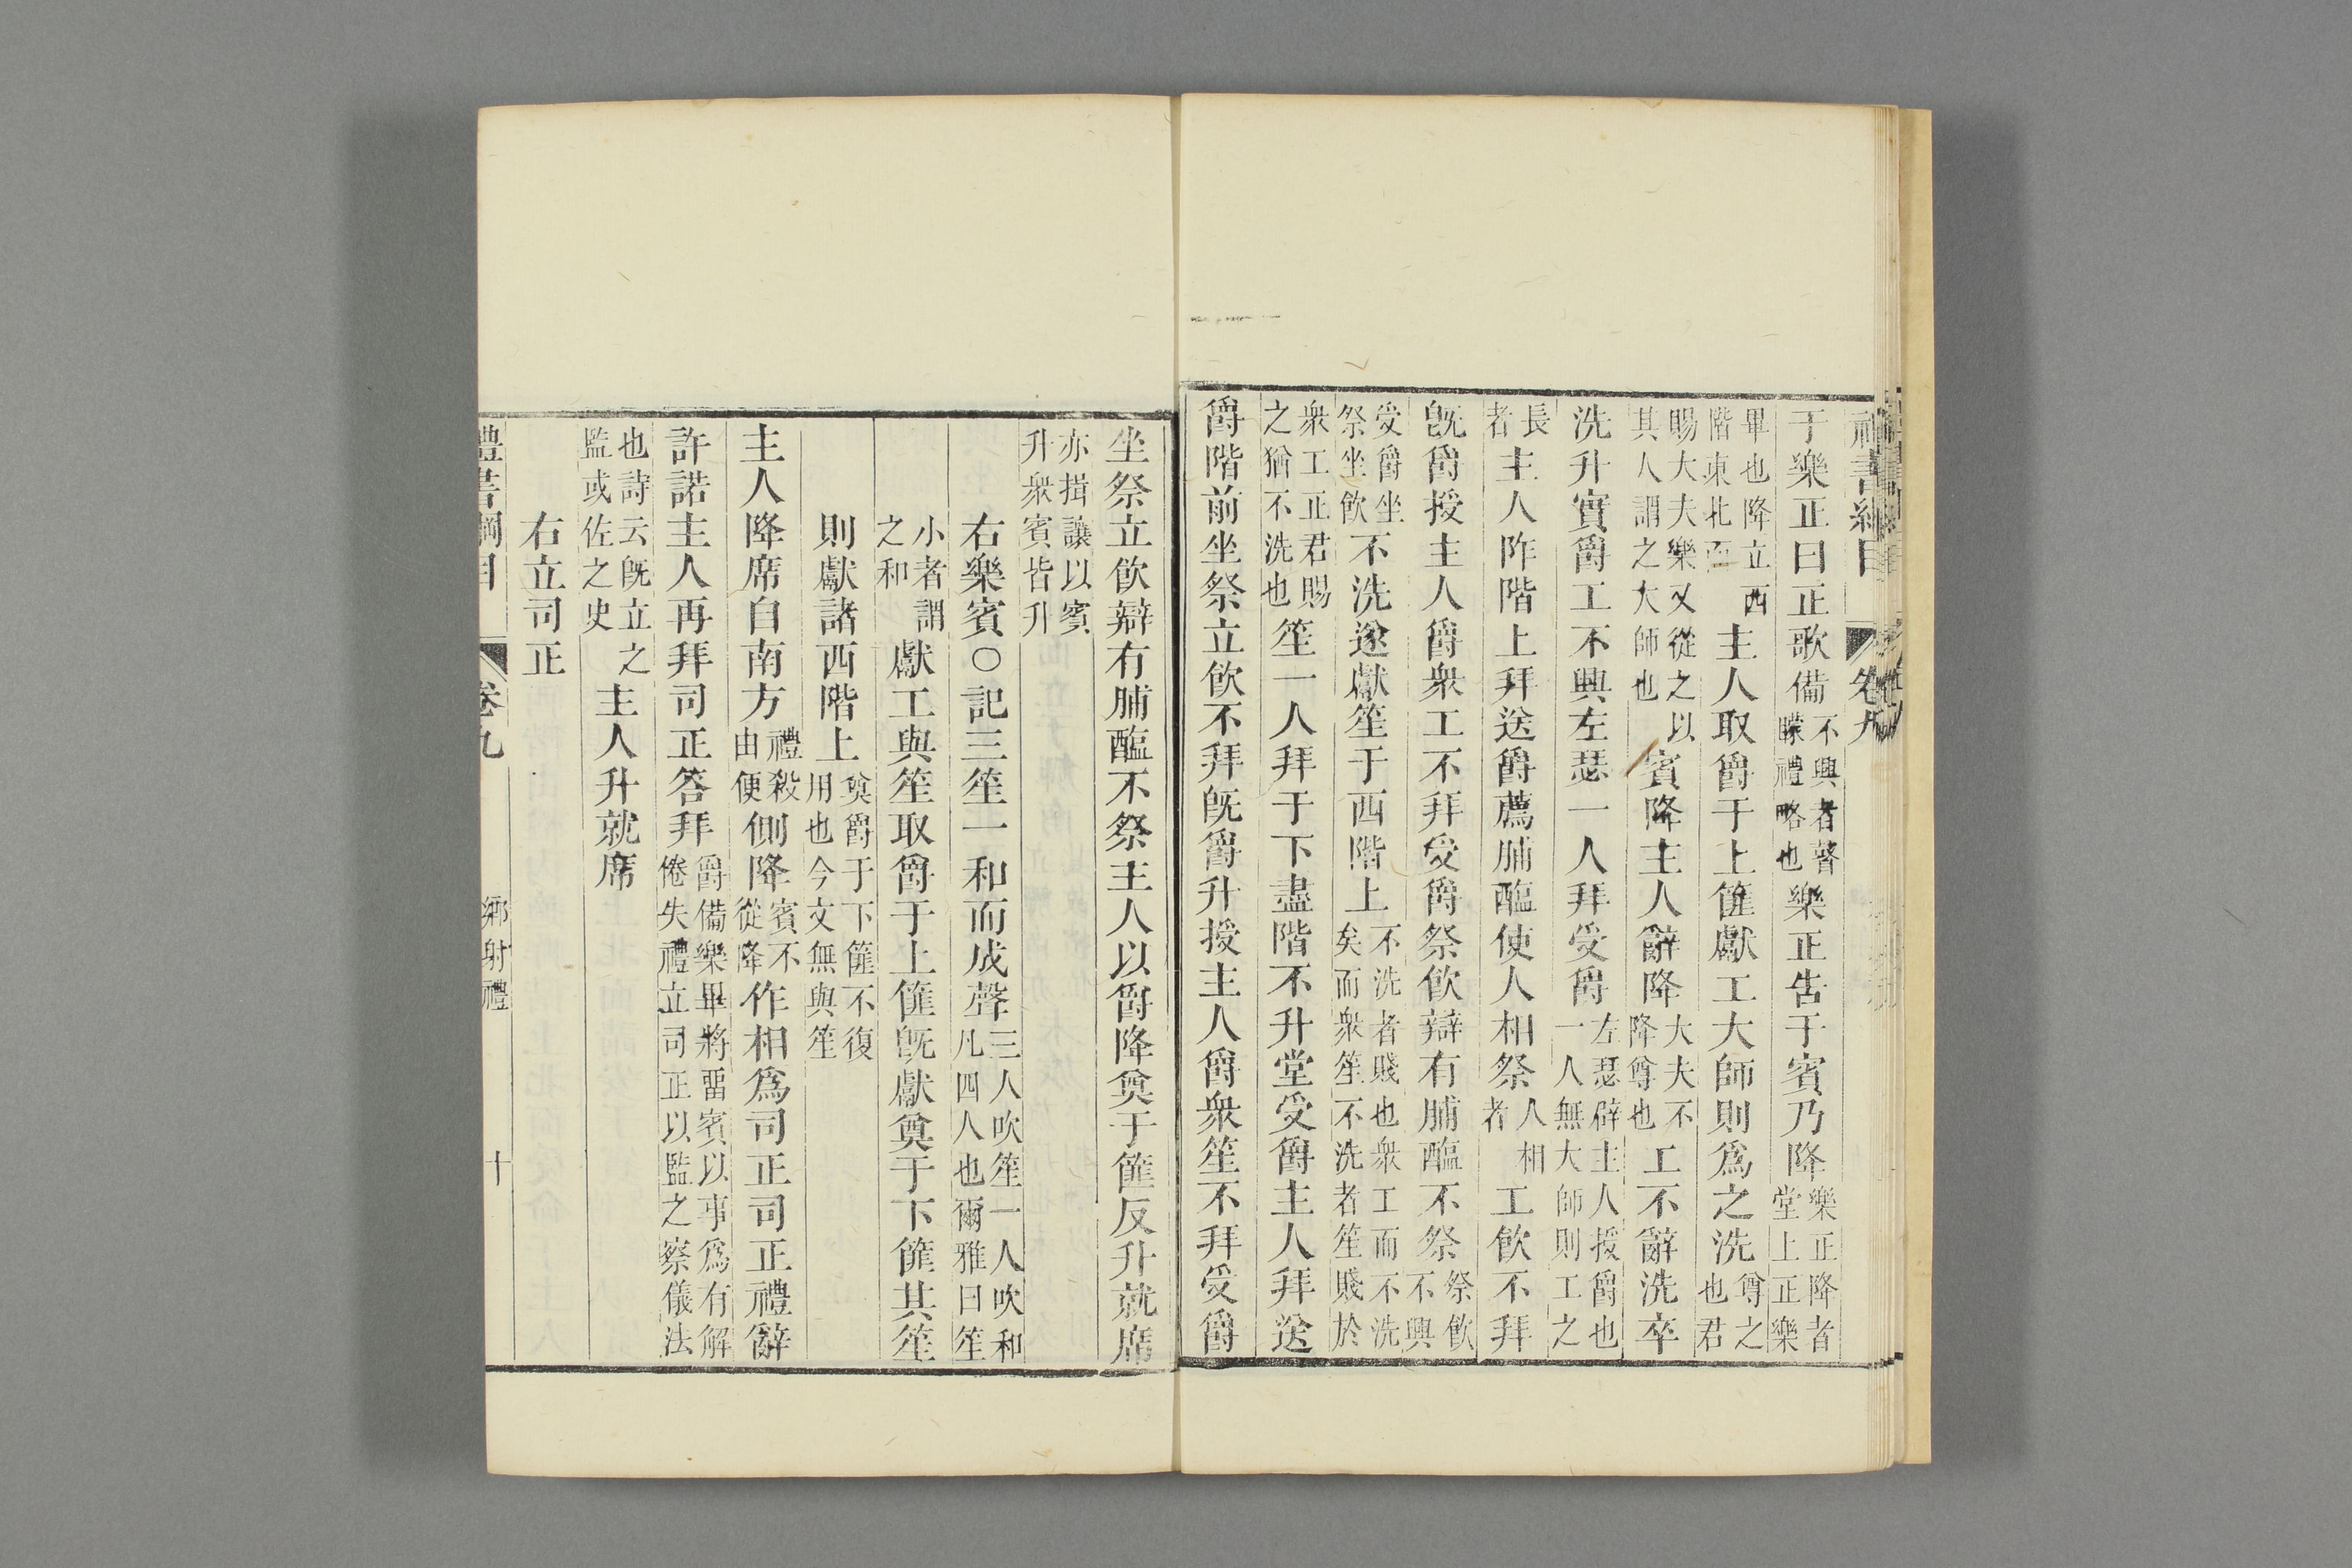 書綱目　卷九
于樂正曰正歌備不興者瞽矇禮略也樂正告于賓乃降樂正降者堂上正樂
畢也降立西階東北面主人取爵于上篚獻工大師則爲之洗尊之也君
賜大夫樂又從之以其人謂之大師也賓降主人辭降大夫不降尊也工不辭洗卒
洗升實爵工不興左瑟一人拜受爵左瑟辟主人授爵也一人無大師則工之
長者主人阼階上拜送爵薦脯醢使人相祭人相者工飲不拜
旣爵授主人爵衆工不拜受爵祭飲辯有脯醢不祭祭飲不興
受爵坐祭坐飲不洗遂獻笙于西階上不洗者賤也衆工而不洗矣而衆笙不洗者笙賤於
衆工正君賜之猶不洗也笙一人拜于下盡階不升堂受爵主人拜送
爵階前坐祭立飲不拜旣爵升授主人爵衆笙不拜受爵
坐祭立飲辯有脯醢不祭主人以爵降奠于篚反升就席
亦揖讓以賓升衆賓皆升
右樂賓○記三笙一和而成聲三人吹笙一人吹和凡四人也爾雅曰笙
小者謂之和獻工與笙取爵于上篚旣獻奠于下篚其笙
則獻諸西階上奠爵于下篚不復用也今文無與笙
主人降席自南方禮殺由便側降賓不從降作相爲司正司正禮辭
許諾主人再拜司正答拜爵備樂畢將畱賓以事爲有解倦失禮立司正以監之察儀法
也詩云旣立之監或佐之史主人升就席
右立司正
禮書綱目　卷九　鄉射禮　十